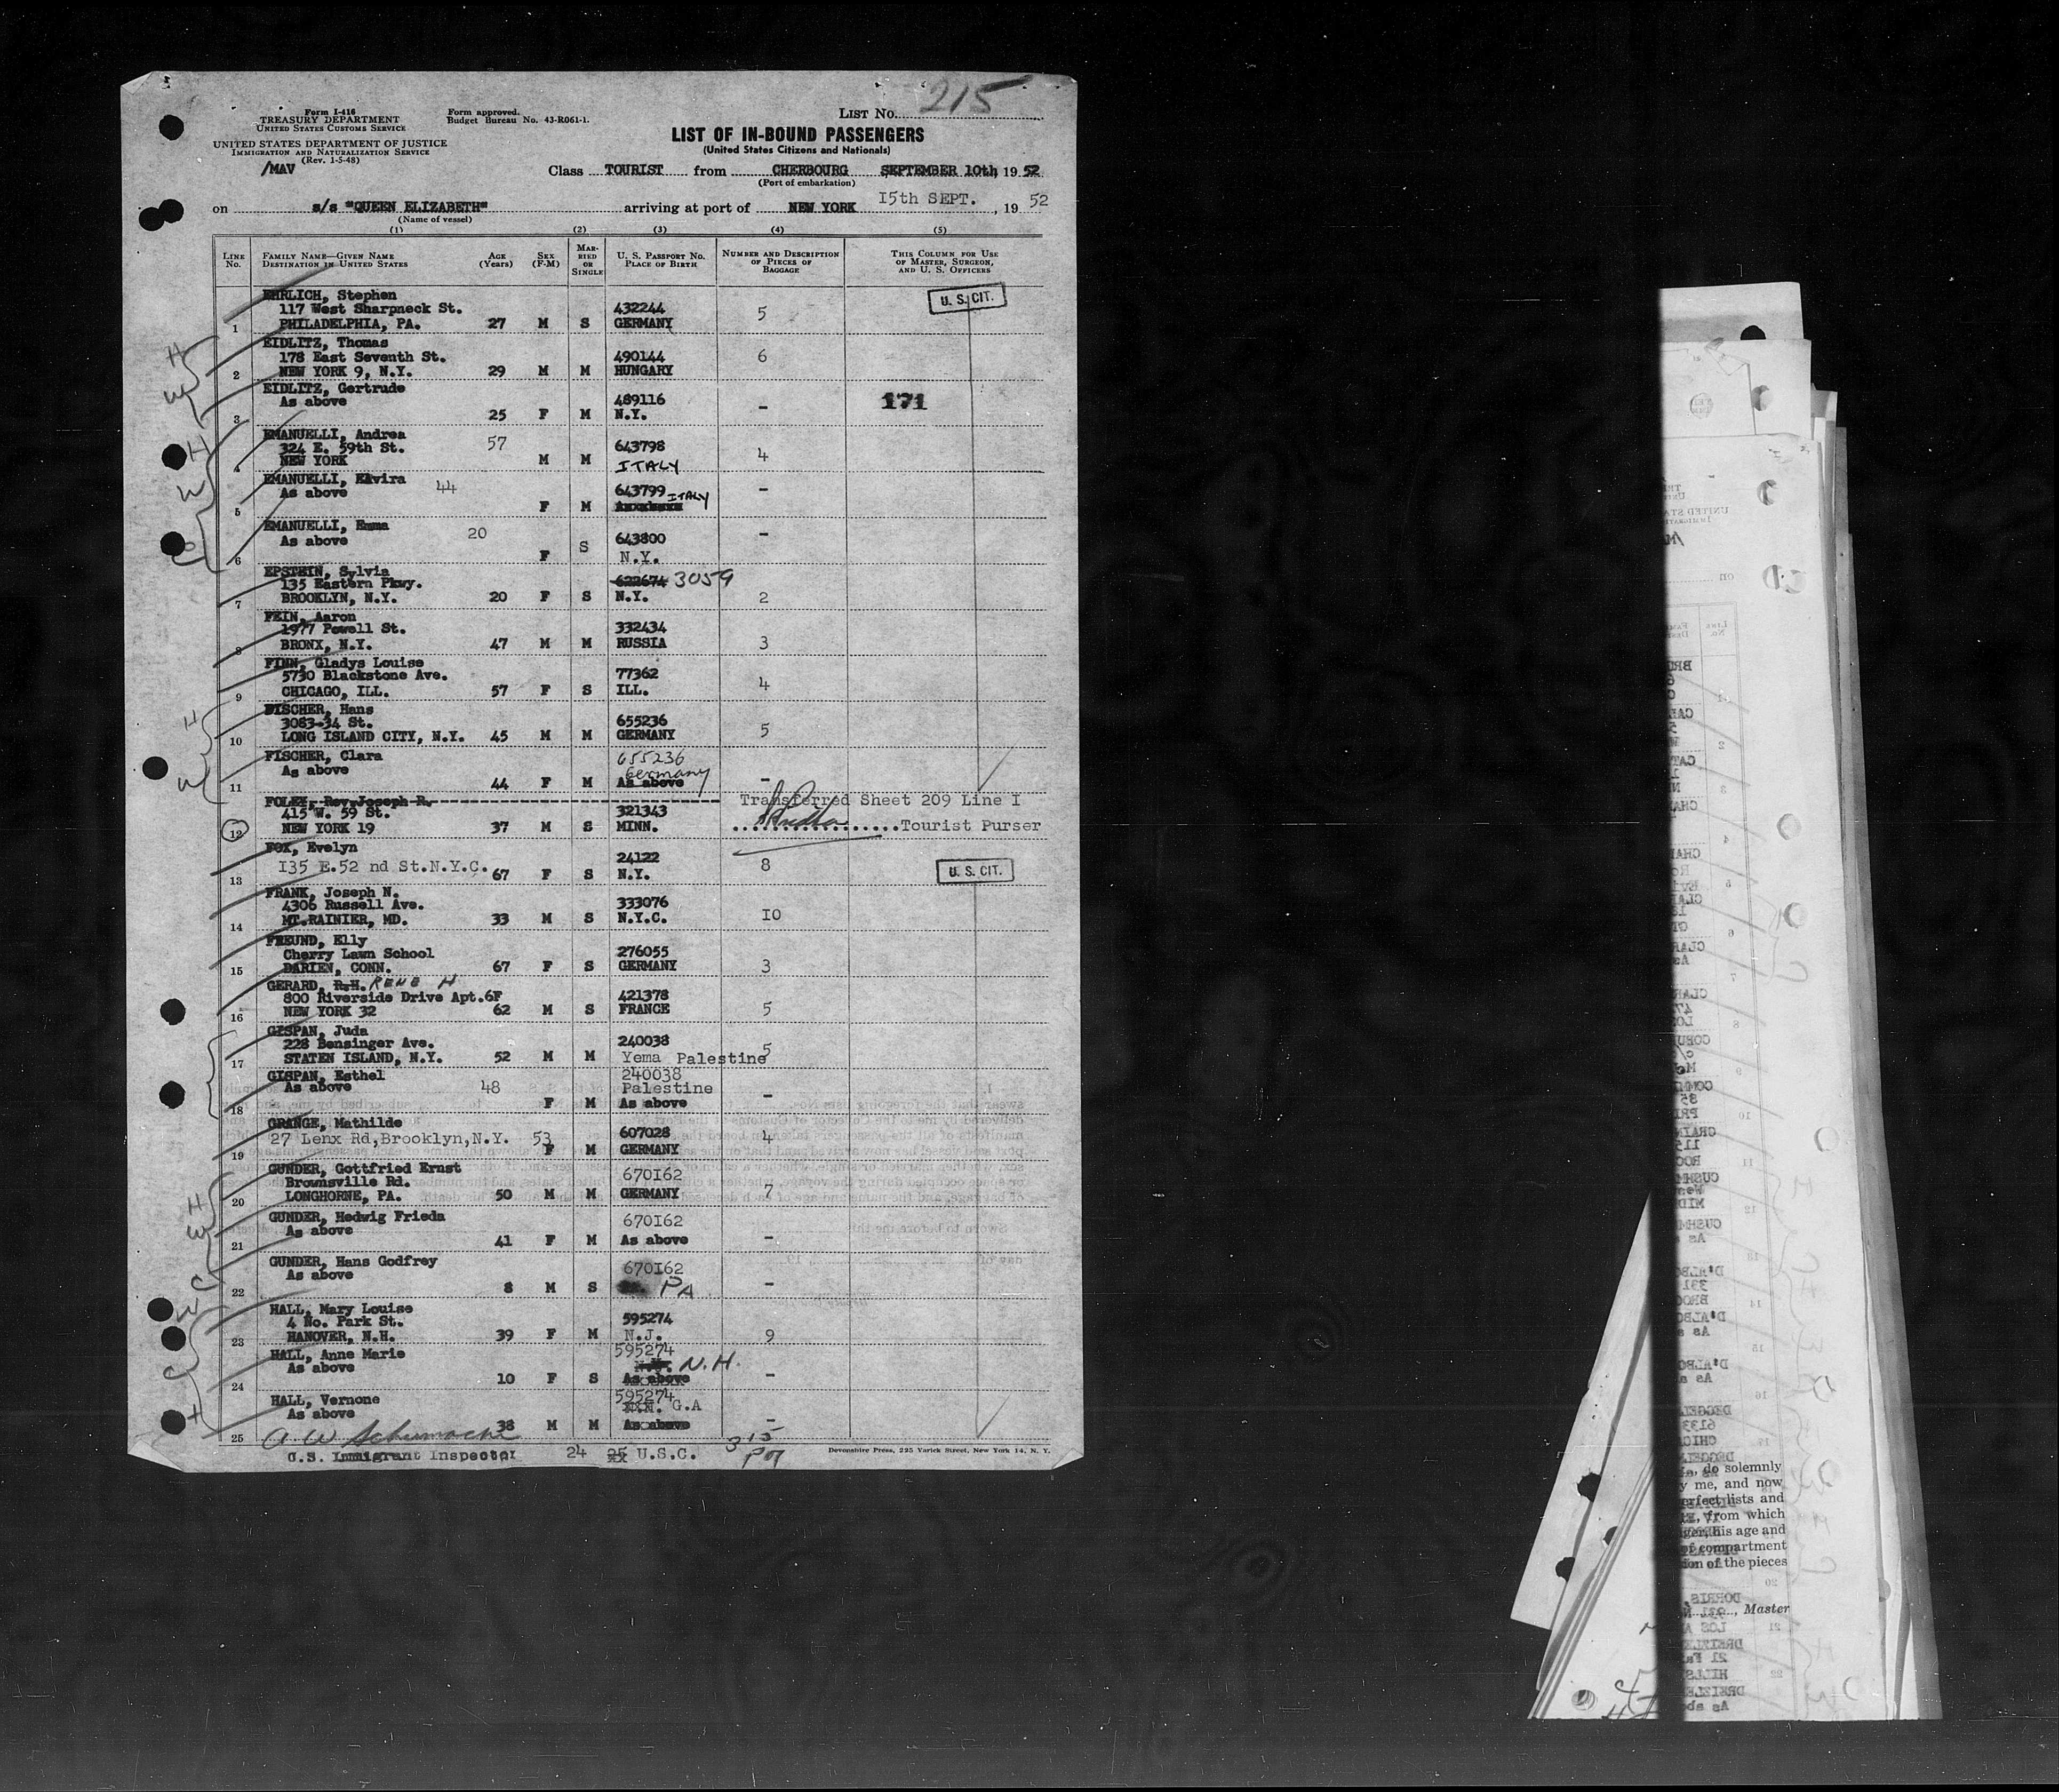 215
Form I-416
TREASURY DEPARTMENT
UNITED STATES CUSTOMS SERVICE
Form approved.
Budget Bureau No. 43-R061-1.
LIST NO.
UNITED STATES DEPARTMENT OF JUSTICE
IMMIGRATION AND NATURALIZATION SERVICE
(Rev. 1-5-48)
/MAV
LIST OF IN-BOUND PASSENGERS
(United States Citizens and Nationals)
Class TOURIST from CHERBOURG SEPTEMBER 10th, 19 52
(Port of embarkation)
on s/s "QUEEN ELIZABETH" arriving at port of NEW YORK 15th SEPT. , 19 52
(Name of vessel)
(1) (2) (3) (4) (5)
LINE No. FAMILY NAME—GIVEN NAME DESTINATION IN UNITED STATES AGE (Years) SEX (F-M) MARRIED OR SINGLE U. S. PASSPORT NO. PLACE OF BIRTH NUMBER AND DESCRIPTION OF PIECES OF BAGGAGE THIS COLUMN FOR USE OF MASTER, SURGEON, AND U. S. OFFICERS
EHRLICH, Stephen
117 West Sharpneck St. 432244 5 U. S. CIT.
1 PHILADELPHIA, PA. 27 M S GERMANY
EIDLITZ, Thomas
178 East Seventh St. 490144 6
2 NEW YORK 9, N.Y. 29 M M HUNGARY
EIDLITZ, Gertrude
As above 489116 - 171
3 25 F M N.Y.
EMANUELLI, Andrea 57
324 E. 59th St. 643798 4
4 NEW YORK M M ITALY
EMANUELLI, Elvira
As above 44 643799 ITALY -
5 F M
EMANUELLI, Emma
As above 20 S 643800 -
6 F N.Y.
EPSTEIN, Sylvia
135 Eastern Pkwy. 622674 3059
7 BROOKLYN, N.Y. 20 F S N.Y. 2
FEIN, Aaron
1977 Powell St. 332434
8 BRONX, N.Y. 47 M M RUSSIA 3
FINN, Gladys Louise
5730 Blackstone Ave. 77362 4
9 CHICAGO, ILL. 57 F S ILL.
FISCHER, Hans
3083-34 St. 655236 5
10 LONG ISLAND CITY, N.Y. 45 M M GERMANY
FISCHER, Clara 655236
As above Germany
11 44 F M As above -
FOLEY, Rev. Joseph R. Transferred Sheet 209 Line I
415 W. 59 St. 321343
12 NEW YORK 19 37 M S MINN. Tourist Purser
FOX, Evelyn 24122
I35 E.52 nd St.N.Y.C. 8 U. S. CIT.
13 67 F S N.Y.
FRANK, Joseph N.
4306 Russell Ave. 333076 IO
14 MT.RAINIER, MD. 33 M S N.Y.C.
FREUND, Elly
Cherry Lawn School 276055
15 DARIEN, CONN. 67 F S GERMANY 3
GERARD, R.H. RENE H
800 Riverside Drive Apt.6F 421378
16 NEW YORK 32 62 M S FRANCE 5
GISPAN, Juda
228 Bensinger Ave. 240038 5
17 STATEN ISLAND, N.Y. 52 M M Yema Palestine
GISPAN, Esthel 240038
As above 48 Palestine
18 F M As above -
GRANGE, Mathilde
27 Lenx Rd,Brooklyn,N.Y. 53 607028 4
19 F M GERMANY
GUNDER, Gottfried Ernst
Brownsville Rd. 670I62
20 LONGHORNE, PA. 50 M M GERMANY 7
GUNDER, Hedwig Frieda 670I62
As above
21 41 F M As above -
GUNDER, Hans Godfrey
As above 670I62
22 8 M S PA -
HALL, Mary Louise
4 No. Park St. 595274
23 HANOVER, N.H. 39 F M N.J. 9
HALL, Anne Marie 595274
As above N.H.
24 10 F S As above -
HALL, Vernone 595274
As above G.A
25 38 M M As above -
A W Schumache
U.S. Immigrant Inspector 24 25 U.S.C. Devonshire Press, 225 Varick Street, New York 14, N. Y.
do solemnly
y me, and now
erfect lists and
, from which
his age and
of compartment
of the pieces
, Master